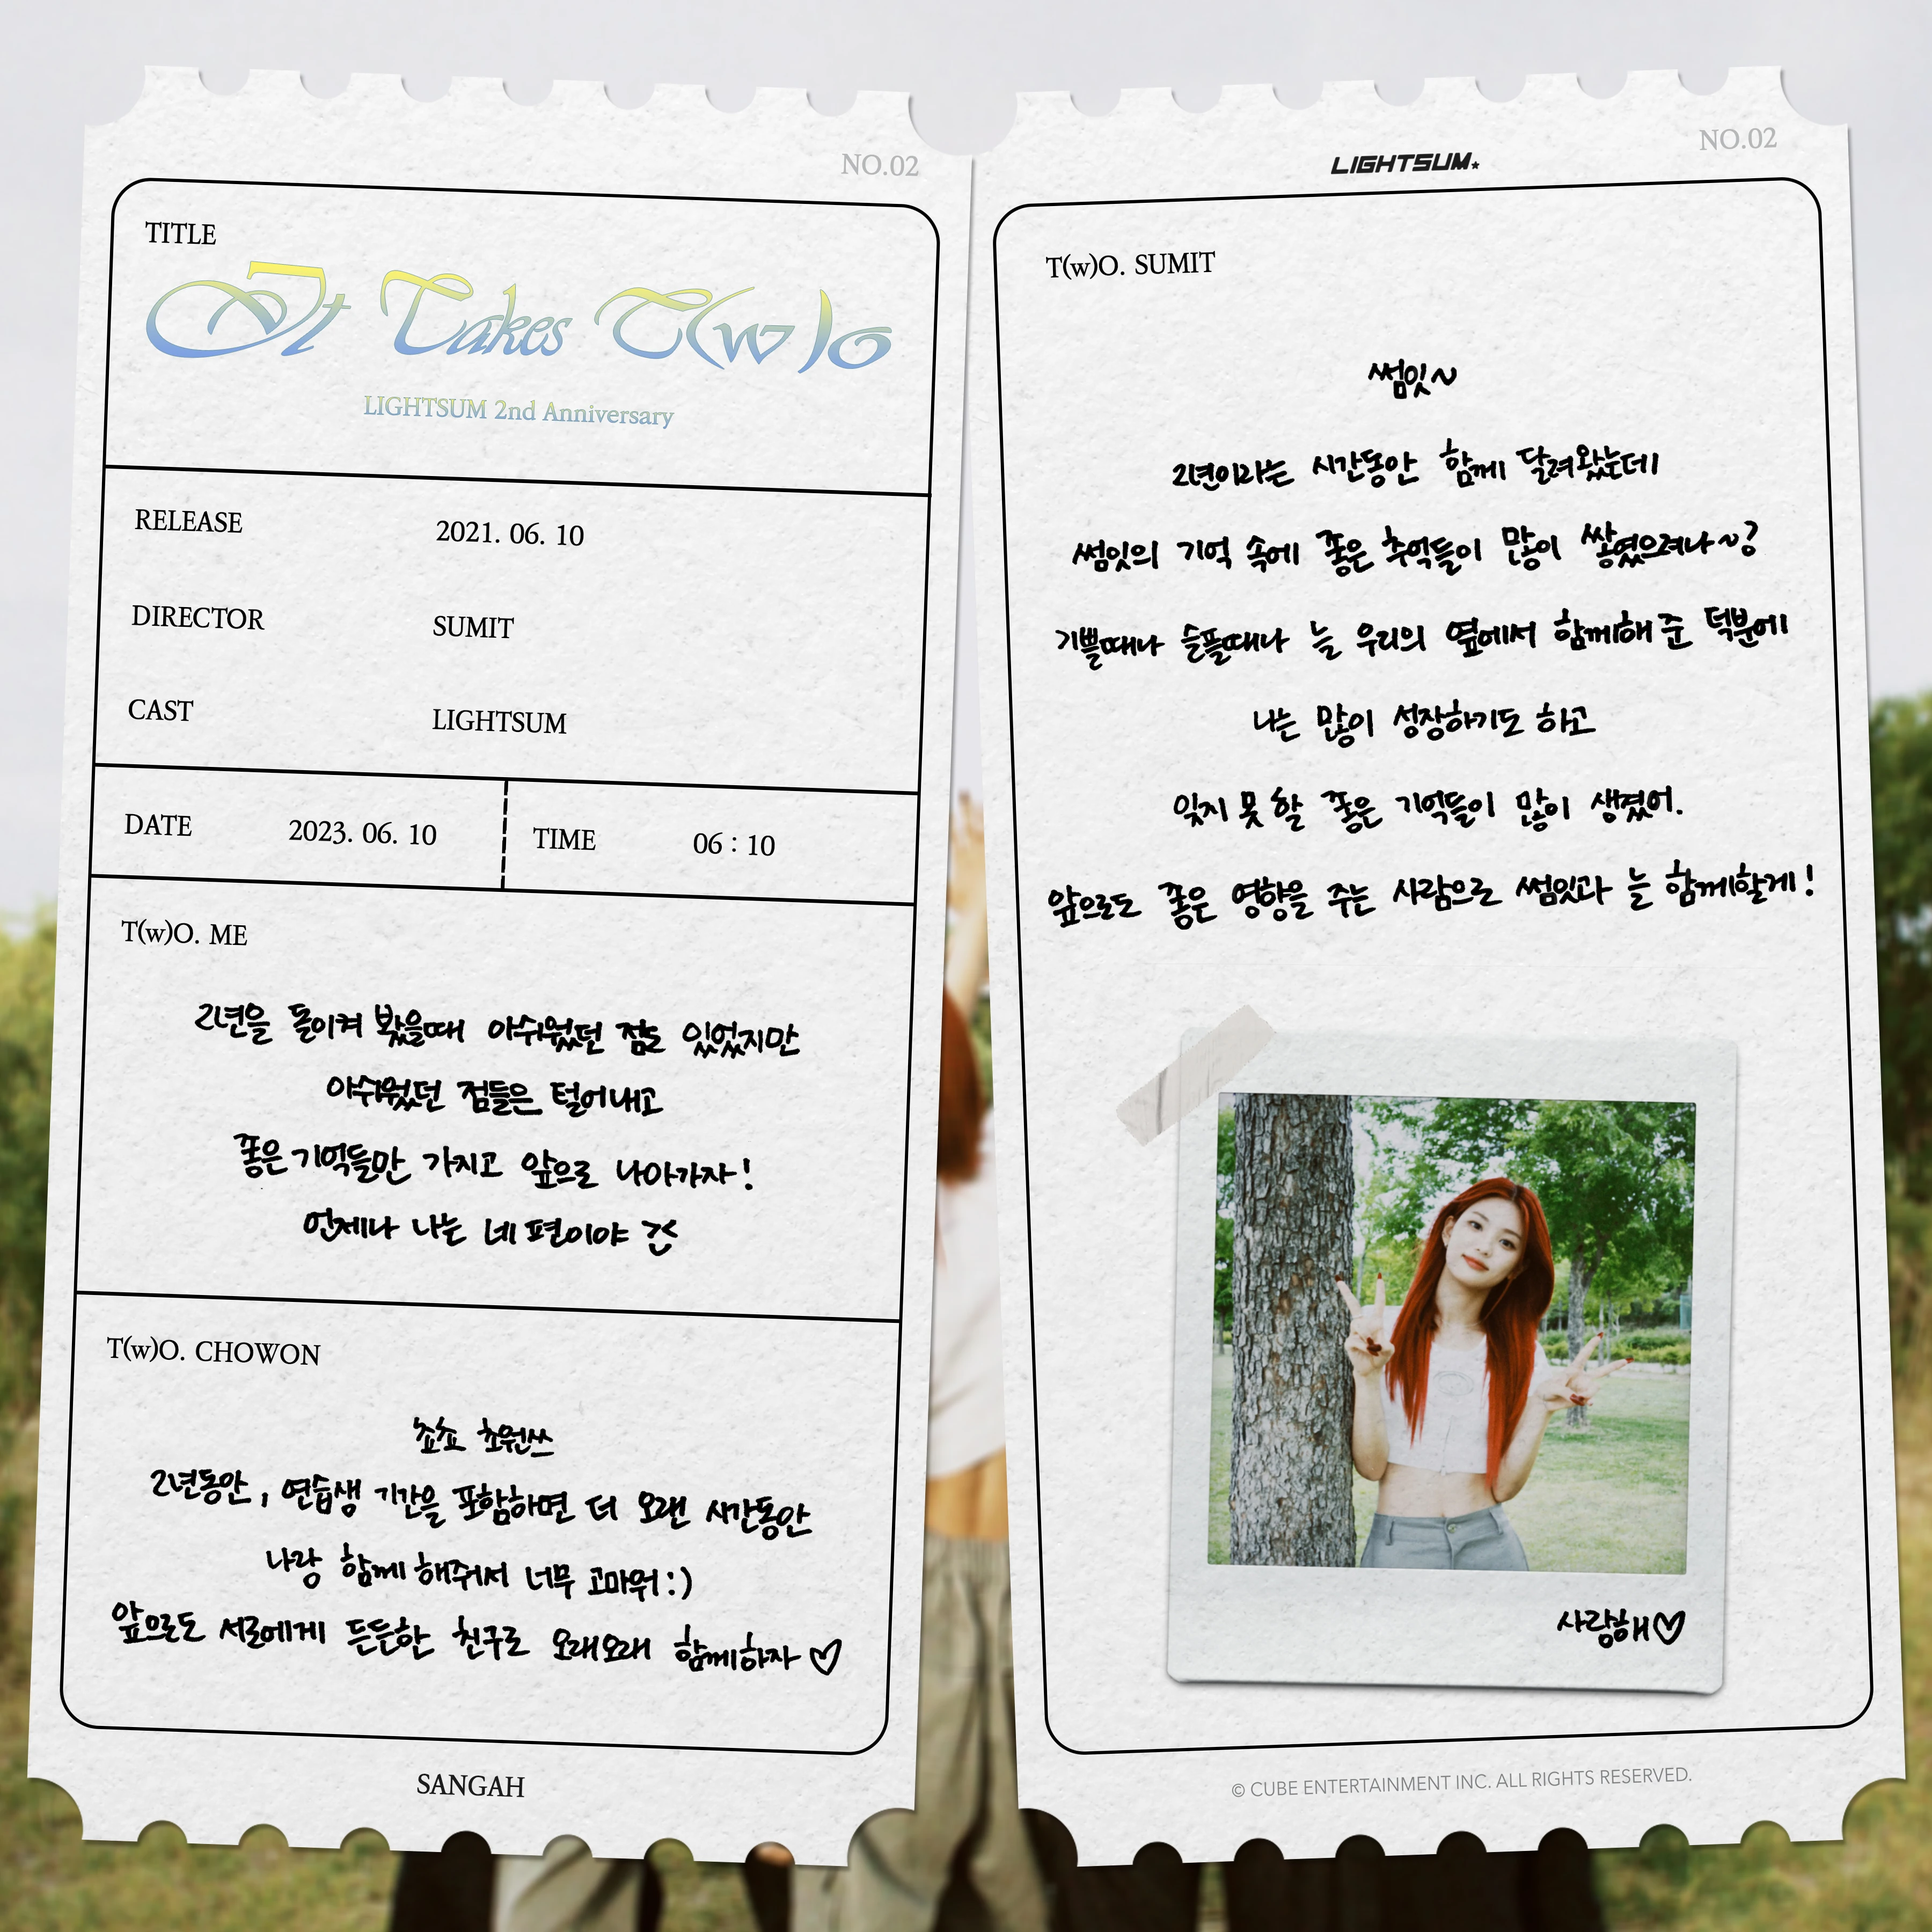 NO.02
TITLE
It Takes T(w)o
LIGHTSUM 2nd Anniversary
RELEASE 2021. 06. 10
DIRECTOR SUMIT
CAST LIGHTSUM
DATE 2023. 06. 10 TIME 06 : 10
T(w)O. ME
2년을 돌이켜 봤을때 아쉬웠던 점도 있었지만
아쉬웠던 점들은 털어내고
좋은 기억들만 가지고 앞으로 나아가자!
언제나 나는 네 편이야
T(w)O. CHOWON
쵸쵸 쵸원쓰
2년동안, 연습생 기간을 포함하면 더 오랜 시간동안
나랑 함께 해줘서 너무 고마워:)
앞으로도 서로에게 든든한 친구로 오래오래 함께하자♡
SANGAH
LIGHTSUM★
NO.02
T(w)O. SUMIT
썸잇~
2년이라는 시간동안 함께 달려왔는데
썸잇의 기억 속에 좋은 추억들이 많이 쌓였으려나~?
기쁠때나 슬플때나 늘 우리의 옆에서 함께해 준 덕분에
나는 많이 성장하기도 하고
잊지 못 할 좋은 기억들이 많이 생겼어.
앞으로도 좋은 영향을 주는 사람으로 썸잇과 늘 함께할게!
사랑해♡
© CUBE ENTERTAINMENT INC. ALL RIGHTS RESERVED.